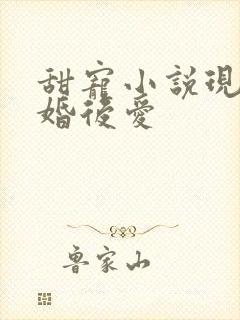 甜寵小説現
婚後愛
鲁家山